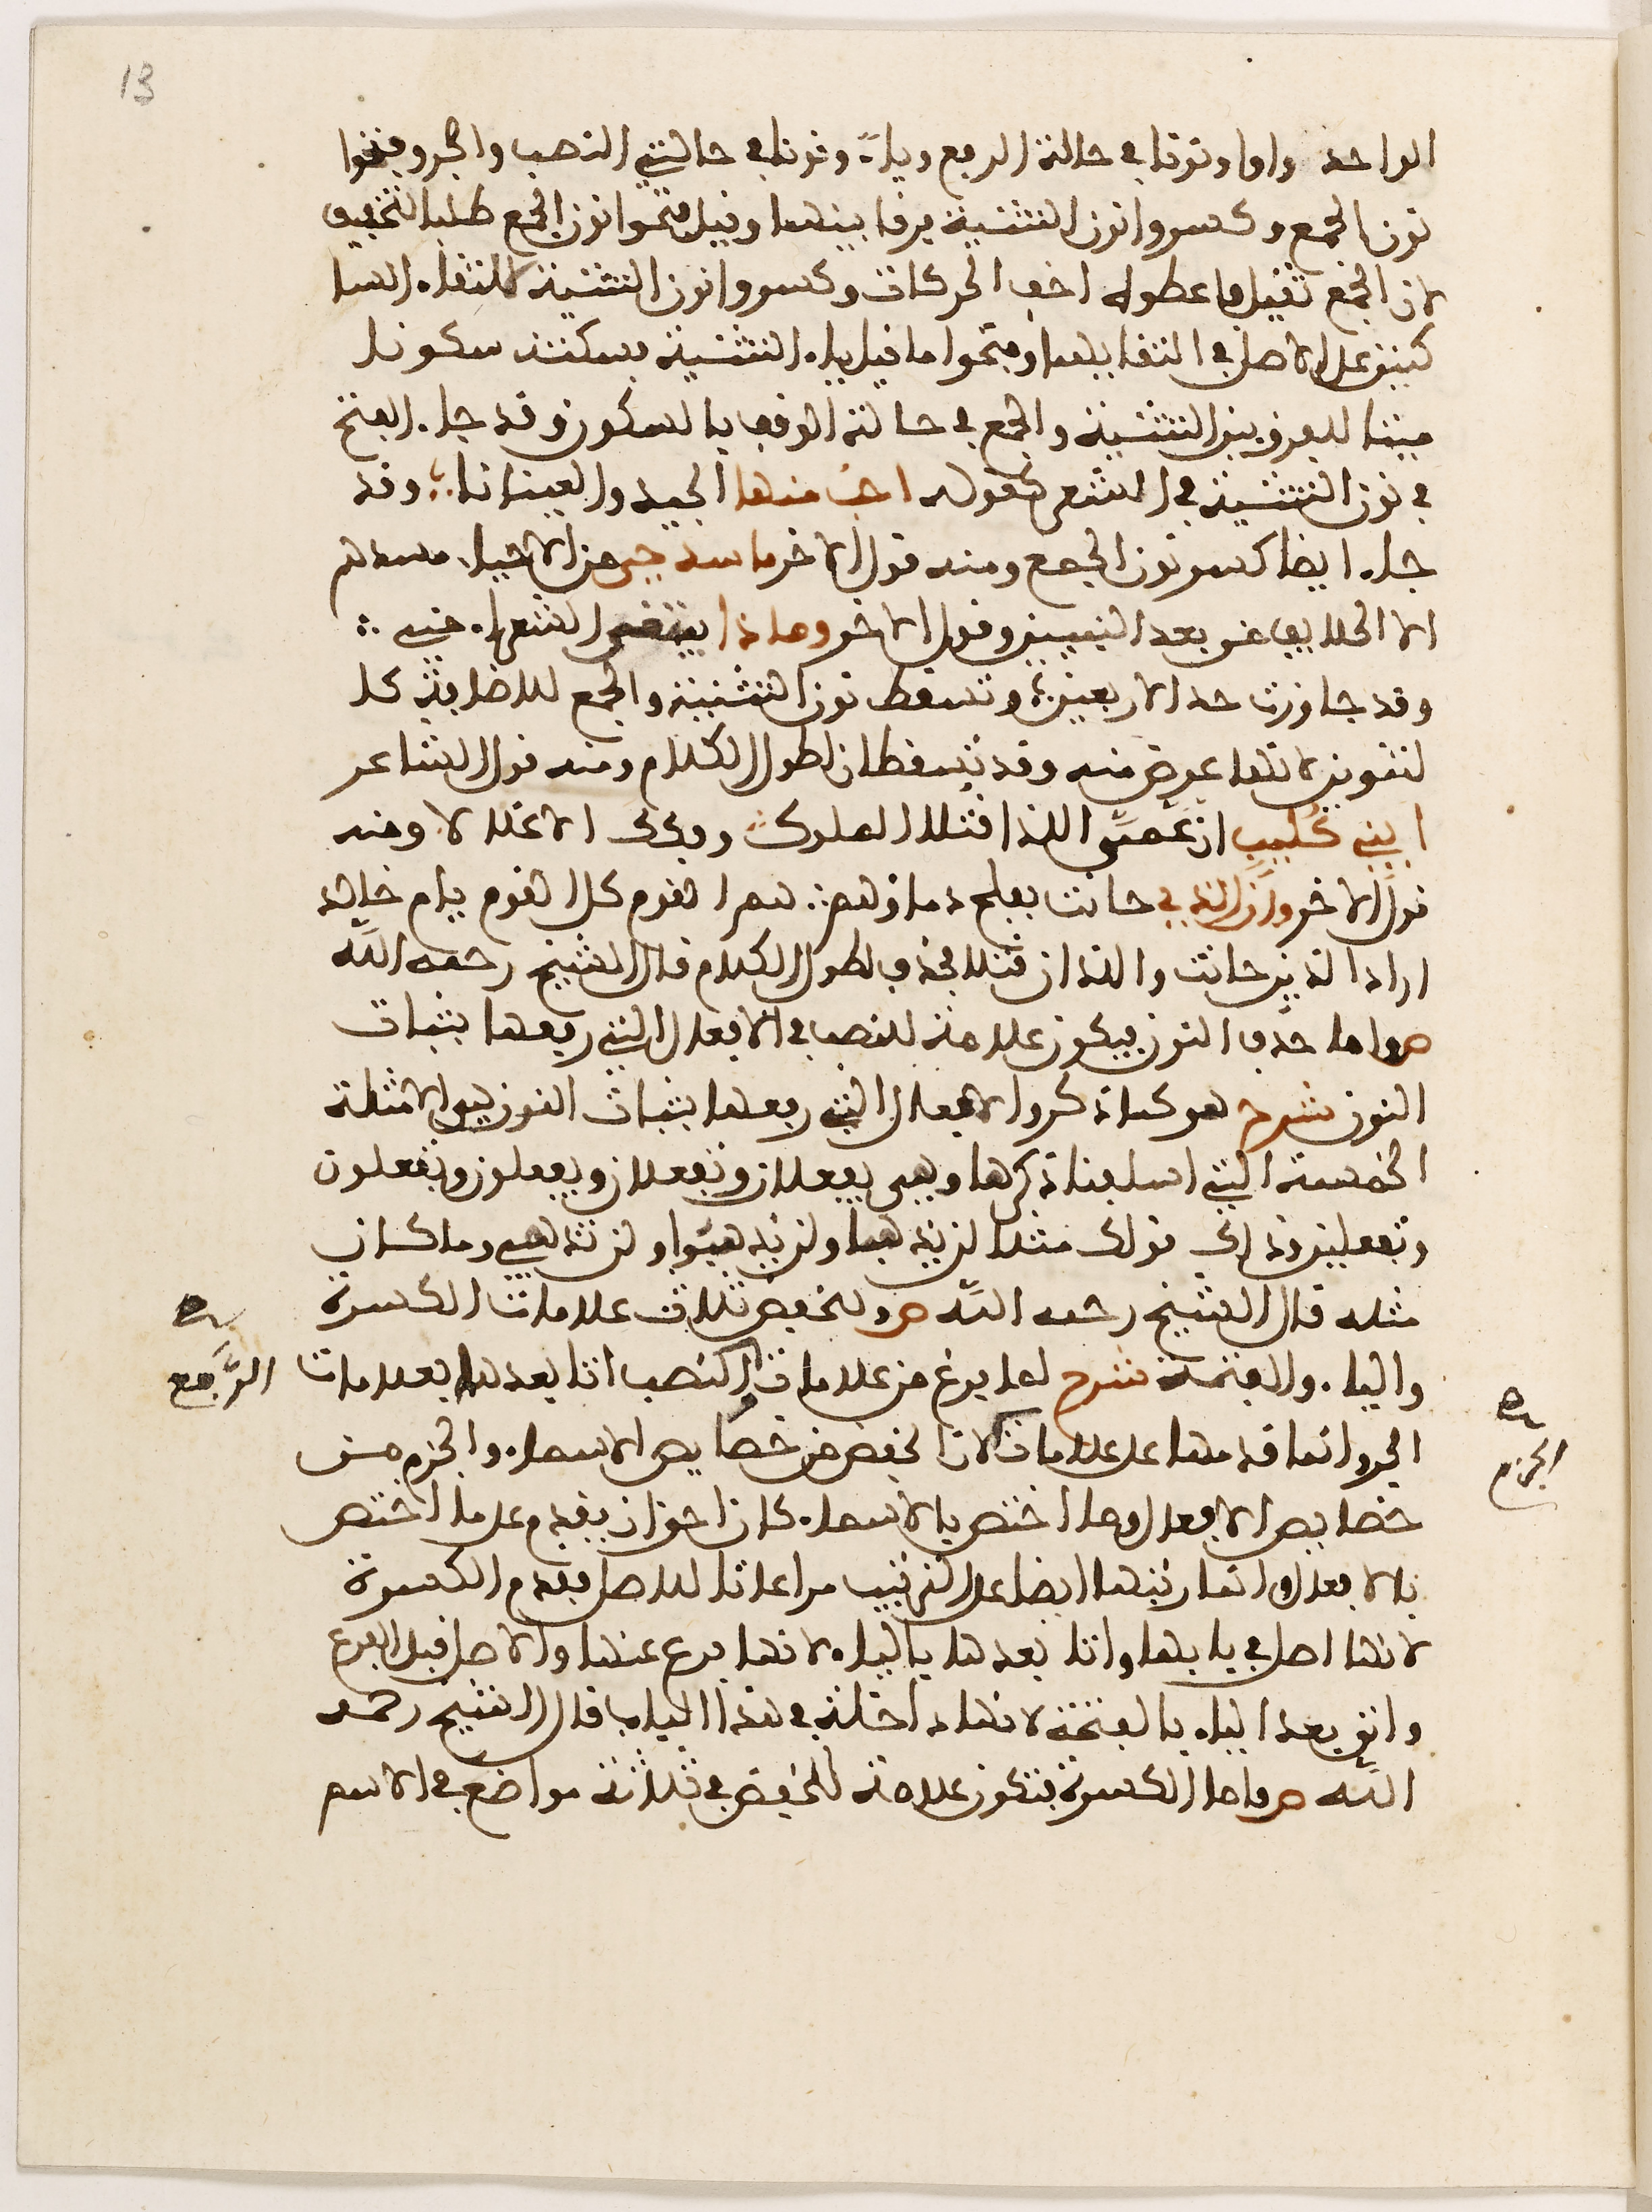 13
الواحد واوا ونونا في حالة الرفع وياء ونونا في حالتي النصب والجر وفتحوا
نون الجمع وكسروا نون التثنية فرقا بينهما وقيل فتحوا نون الجمع طلبا للتخفيف
لان الجمع ثقيل فاعطوله اخف الحركات وكسروا نون التثنية لالتقاء السا
كنين على الاصل في التقايهما وفتحوا ما قبل ياء التثنية فسكنت سكونا
ميتا للفرق بين التثنية والجمع في حالة الوقف بالسكون وقد جاء الفتح
في نون التثنية في الشعر كقوله احب منها الجيد والعينانا وقد
جاء ايضا كسر نون الجمع ومنه قول الاخر ما سد حي من الاحياء مسدهم
الا الخلايف من بعد النبيين وقول الاخر وماذا يبتغي الشعراء مني
وقد جاوزت حد الاربعين وتسقط نون التثنية والجمع للاضافة كا
لتنوين لانها عوض منه وقد تسقطان لطول الكلام ومنه قول الشاعر
ابني كليب ان عمي اللذا قتلا الملوك وفكك الاغلالا ومنه
قول الاخر وان الذي حانت بفلج دماؤهم هم القوم كل القوم يام خالد
اراد الذين حانت واللذان قتلا فحذف لطول الكلام قال الشيخ رحمه الله
ص واما حذف النون فيكون علامة للنصب في الافعال التي رفعها بثبات
النون شرح هو كما ذكر والافعال التي رفعها بثبات النون هي الامثلة
الخمسة التي اسلفنا ذكرها وهي يفعلان وتفعلان ويفعلون وتفعلون
وتفعلين وذلك قولك مثلا لن يذهبا ولن يذهبوا ولن تذهبي وما كان
مثله قال الشيخ رحمه الله ص وللخفض ثلاث علامات الكسرة
والياء والفتحة شرح لما فرغ من علامات النصب اتا بعدها بعلامات
الرفع
الجر وانما قدمها على علامات لان الخفض من خصايص الاسماء والجزم من
الجزم
خصايص الافعال وما اختص بالاسماء كان احق ان يقدم على ما اختص
بالافعال وانما رتبها ايضا على الترتيب مراعاتا للاصل فقدم الكسرة
لانها اصل في بابها واتا بعدها بالياء لانها فرع عنها والاصل قبل الفرع
واتى بعد الياء بالفتحة لانها داخلة في هذا الباب قال الشيخ رحمه
الله ص واما الكسرة فتكون علامة للخفض في ثلاثة مواضع في الاسم